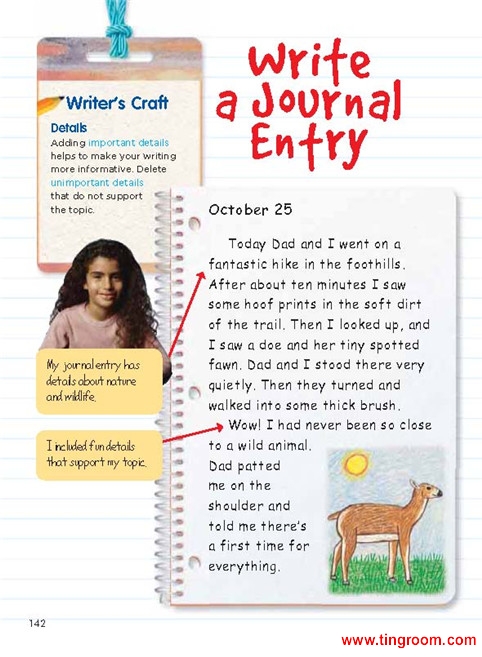 Write
a Journal
Entry
Writer's Craft
Details
Adding important details
helps to make your writing
more informative. Delete
unimportant details
that do not support
the topic.
October 25
Today Dad and I went on a
fantastic hike in the foothills.
After about ten minutes I saw
some hoof prints in the soft dirt
of the trail. Then I looked up, and
I saw a doe and her tiny spotted
fawn. Dad and I stood there very
quietly. Then they turned and
walked into some thick brush.
Wow! I had never been so close
to a wild animal.
Dad patted
me on the
shoulder and
told me there's
a first time for
everything.
My journal entry has
details about nature
and wildlife.
I included fun details
that support my topic.
142
www.tingroom.com